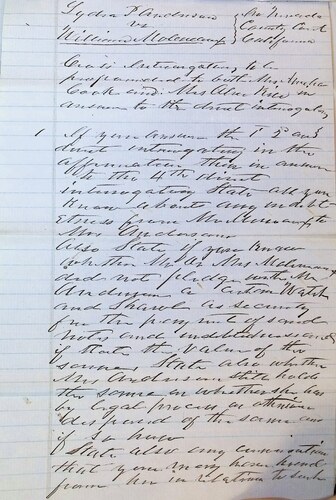 Lydia P Anderson
vs
William Molineaux
County Court
California
Cross Interrogatory to be
propounded to both Mrs
Cook and Mrs Alice Rice in
answer to the direct interrogatory
1 If you answer the 1st 2d and
direct interrogatory in the
affirmative then in answer
to the 4th direct
interrogatory State all you
Know about any indebt
etness from Molineaux to
Mrs Anderson
Also State if you Know
whether Mr or Mrs Molineaux
did not pledge with Mrs
Anderson a certain Watch
and Shawl as security
for the payment of said
notes and indebtedness and
if so State the value of the
same State also whether
Mrs Anderson still holds
the same or whether she has
by legal process or otherwise
disposed of the same and
if so how
State also any conversation
that you may have heard
from her in relation to such